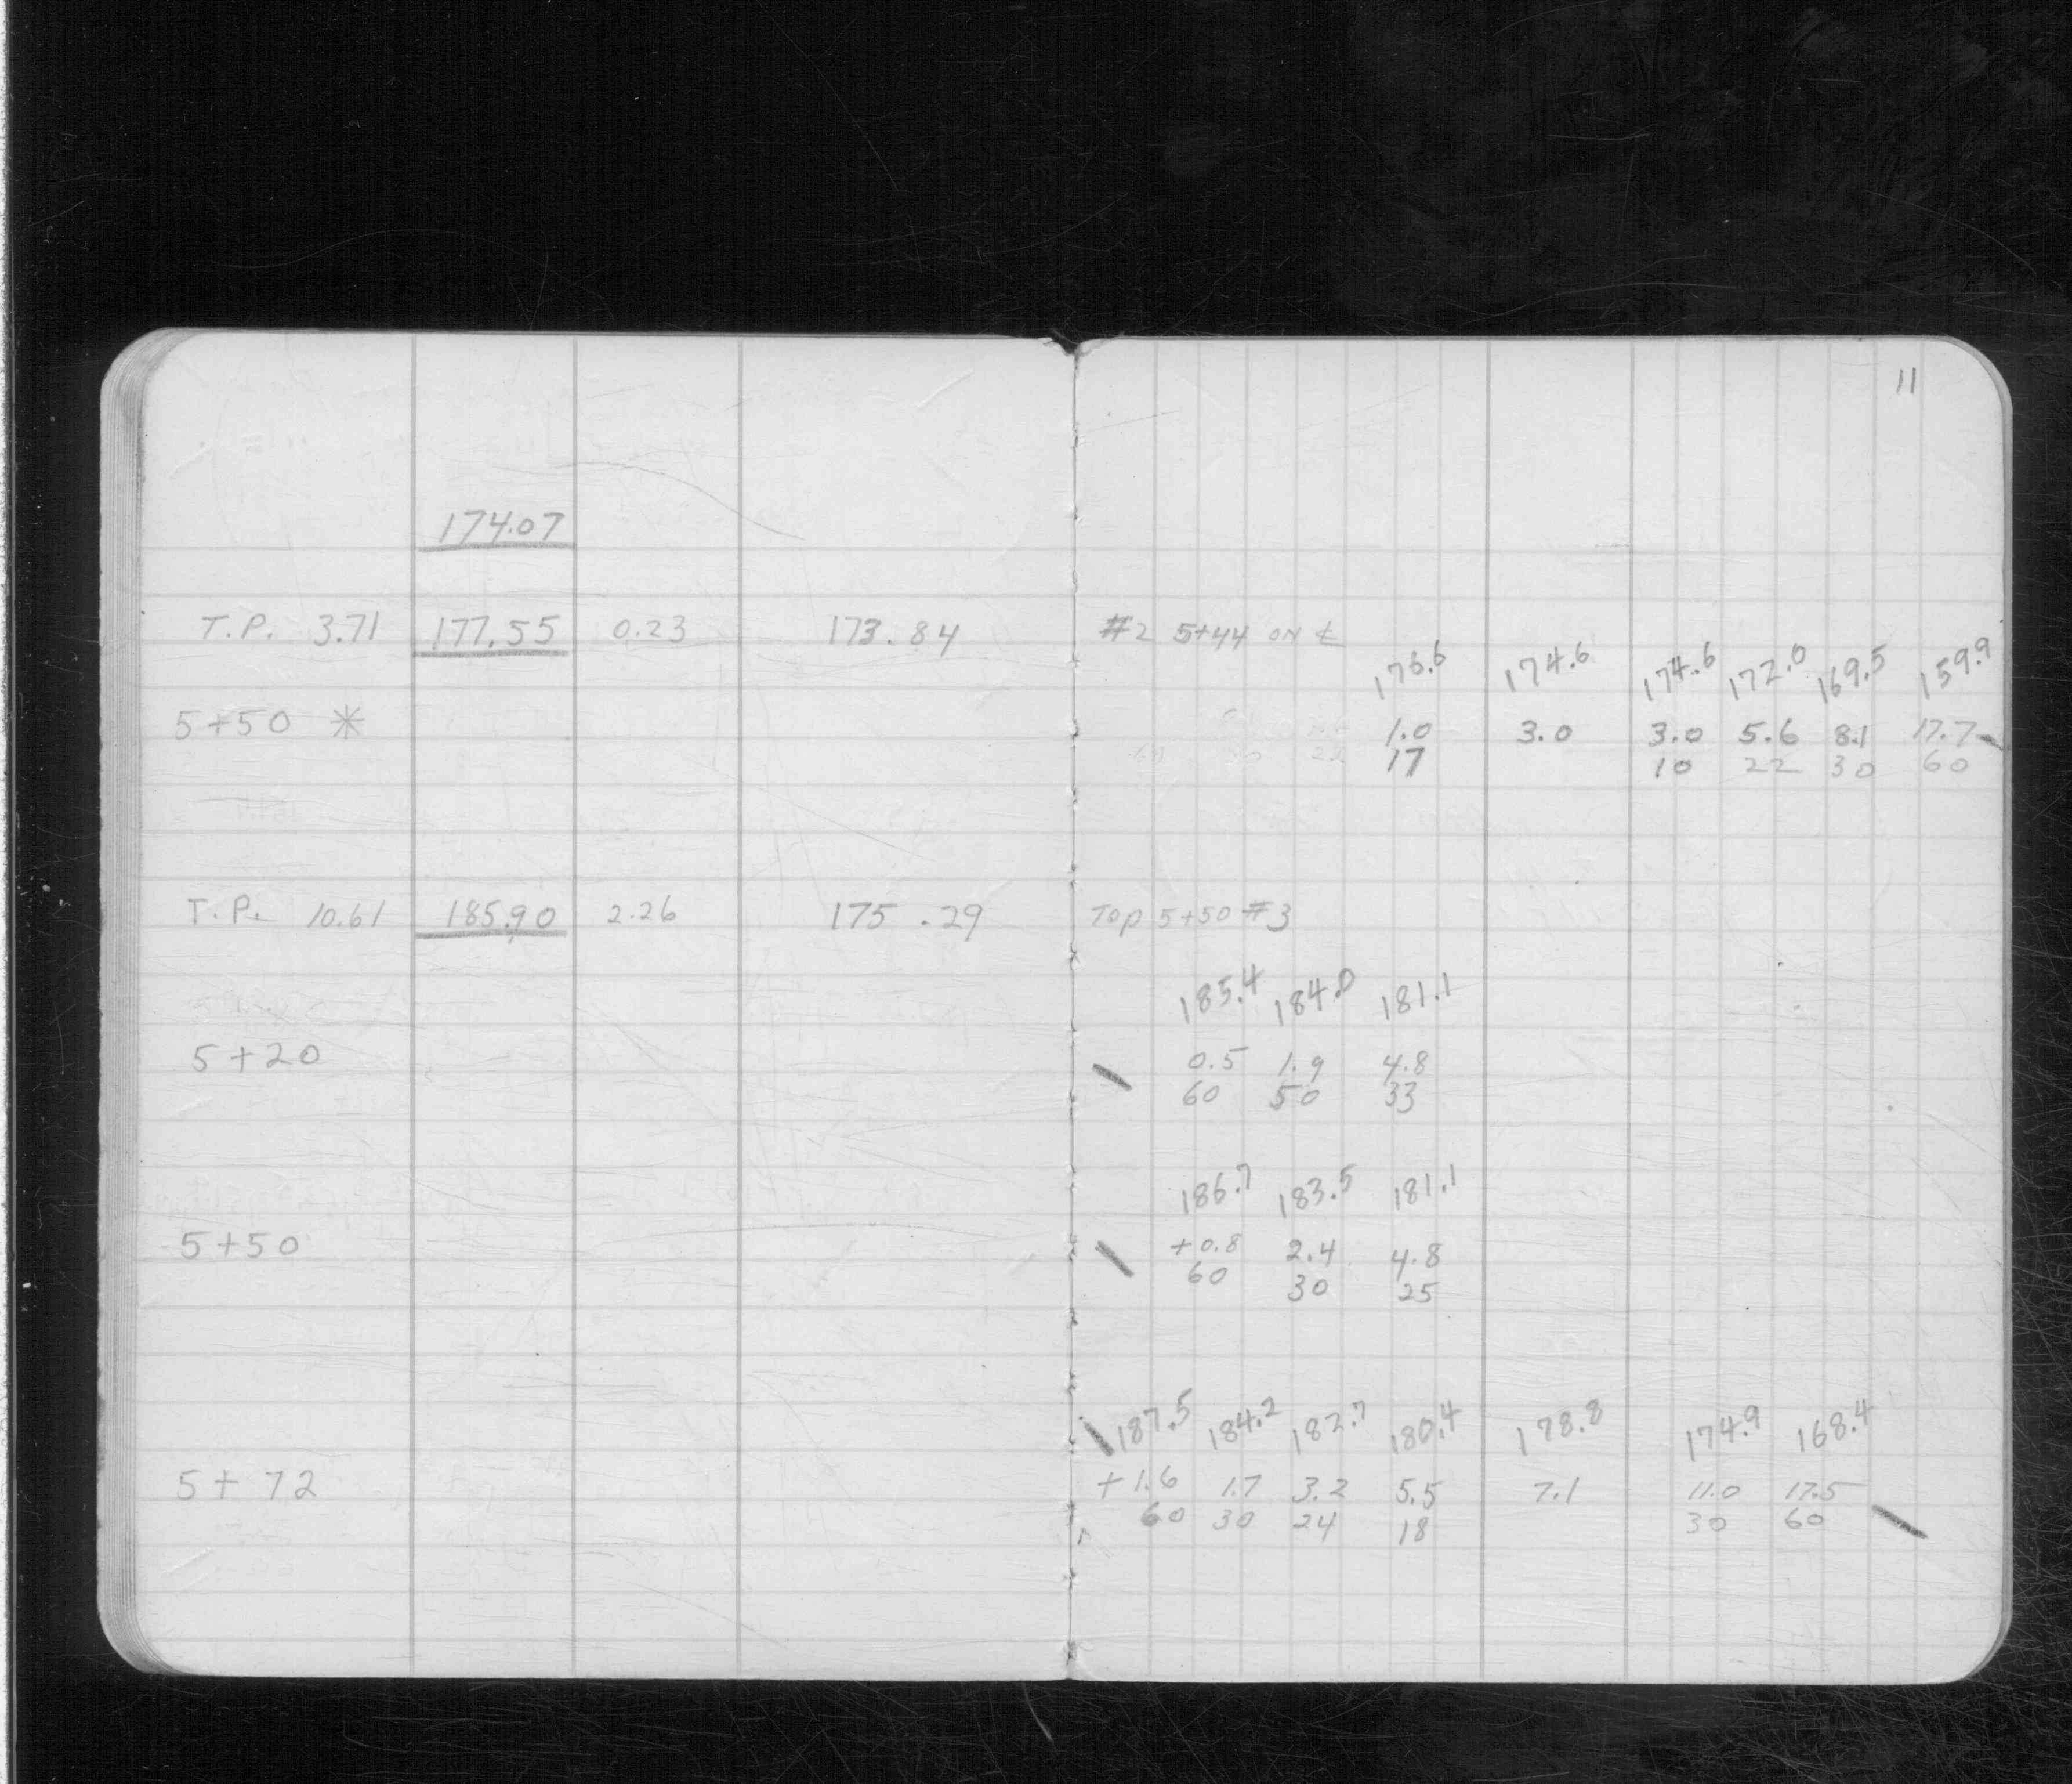 11
174.07
T.P. 3.71 177.55 0.23 173.84 #2 5+44 ON ℄
176.6 174.6 174.6 172.0 169.5 159.9
5+50 * 1.0 3.0 3.0 5.6 8.1 17.7
17 10 22 30 60
T.P. 10.61 185.90 2.26 175.29 Top 5+50 #3
185.4 184.0 181.1
5+20 0.5 1.9 4.8
60 50 33
186.7 183.5 181.1
5+50 +0.8 2.4 4.8
60 30 25
187.5 184.2 182.7 180.4 178.8 174.9 168.4
5+72 +1.6 1.7 3.2 5.5 7.1 11.0 17.5
60 30 24 18 30 60